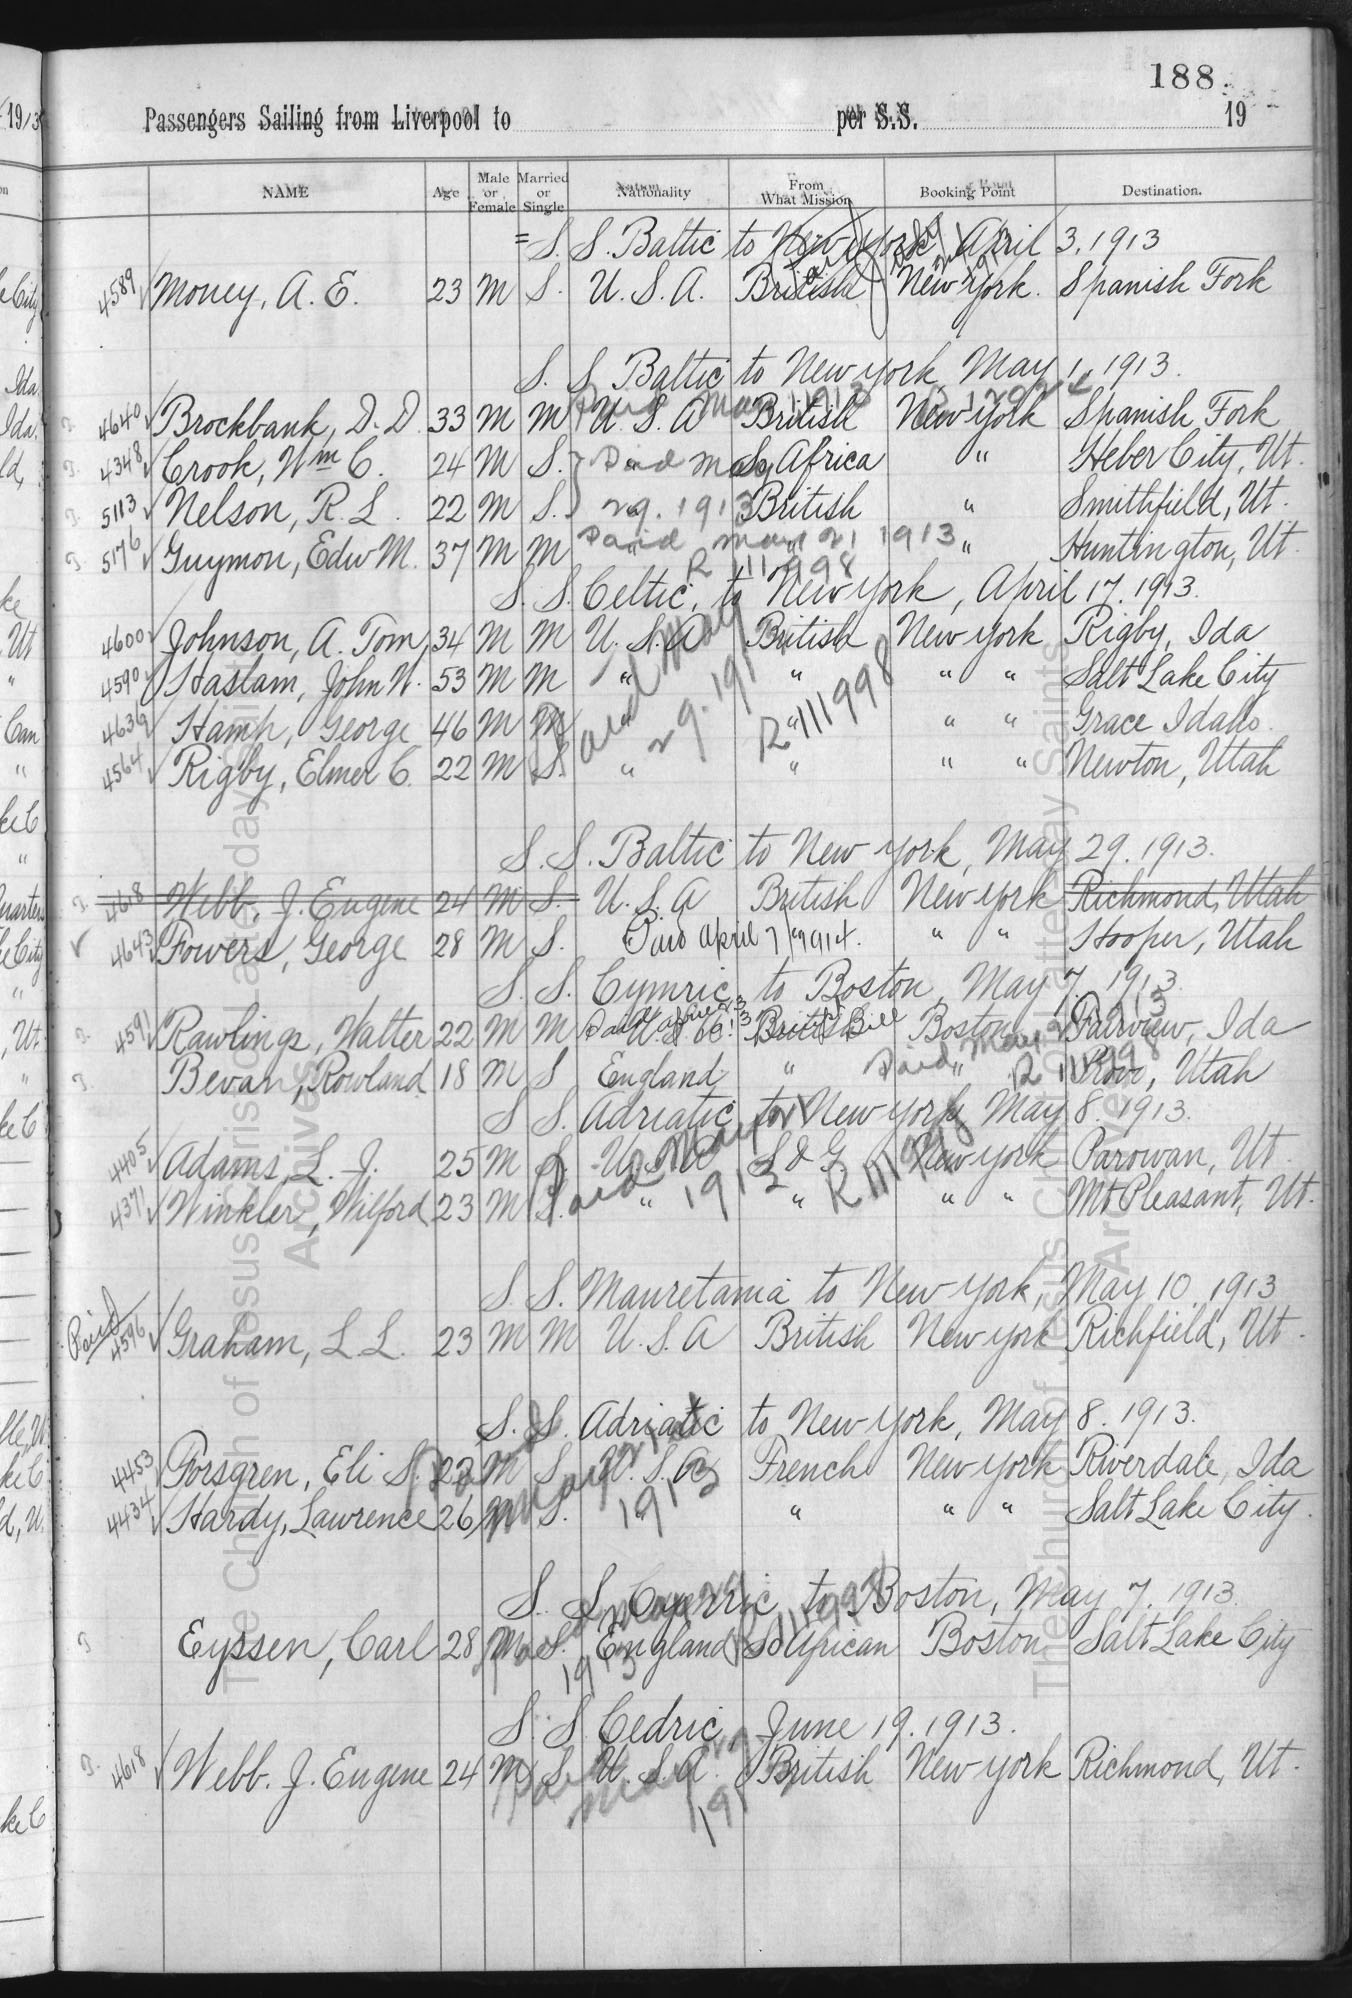 188
Passengers Sailing from Liverpool to per S.S. 19
NAME Age Male or Female Married or Single Nationality From What Mission Booking Point Destination.
S. S. Baltic to New York, April 3, 1913
4589 Money, A. E. 23 M S. U. S. A. British New York. Spanish Fork
S. S. Baltic to New York, May 1, 1913.
4640 Brockbank, D. D. 33 M M U. S. A British New York Spanish Fork
4348 Crook, Wm C. 24 M S. So Africa " Heber City, Ut.
Paid May
5113 Nelson, R. L. 22 M S. British " Smithfield, Ut.
29. 1913
5176 Guymon, Edw M. 37 M M " " Huntington, Ut.
Paid May 21 1913
R 111998
S. S. Celtic, to New York, April 17. 1913.
4600 Johnson, A. Tom, 34 M M U. S. A British New York Rigby, Ida
4590 Haslam, John W. 53 M M " " " " Salt Lake City
4639 Hamp, George 46 M M " " " " Grace Idaho.
4564 Rigby, Elmer C. 22 M S. " " " " Newton, Utah
Paid May 29. 191
R 111998
S. S. Baltic to New York, May 29. 1913.
4618 Webb, J. Eugene 24 M S. U. S. A British New York Richmond, Utah
4643 Fowers, George 28 M S. " " " " Hooper, Utah
Paid April 7 1914.
S. S. Cymric to Boston, May 7. 1913
4591 Rawlings, Walter 22 M M U. S. A. British Boston Fairview, Ida
Bevan, Rowland 18 M S England " " Provo, Utah
S S. Adriatic to New York, May 8. 1913.
4405 Adams, L. J. 25 M S. U. S. A S & G. New York Parowan, Ut.
4371 Winkler, Wilford 23 M S. " " " " Mt Pleasant, Ut.
Paid May 21 1913
R 111998
S. S. Mauretania to New York, May 10. 1913
Paid
4596 Graham, L. L. 23 M M U. S. A British New York Richfield, Ut.
S. S. Adriatic to New York, May 8. 1913.
4453 Forsgren, Eli S. 22 M S. U. S. A French New York Riverdale, Ida
4434 Hardy, Lawrence 26 M S. " " " Salt Lake City.
Paid May 21 1913
S. S. Cymric to Boston, May 7. 1913.
Eyssen, Carl 28 M S. England So African Boston Salt Lake City
S. S. Cedric, June 19. 1913.
4618 Webb. J. Eugene 24 M S. U. S. A. British New York Richmond, Ut.
The Church of Jesus Christ of Latter-day Saints Archives
The Church of Jesus Christ of Latter-day Saints Archives